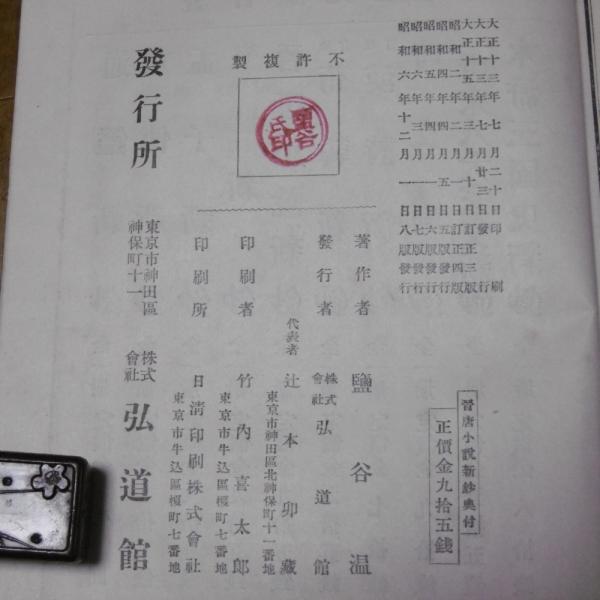 大正十三年七月二十日印刷
大正十三年七月廿三日發行
大正十五年三月十日訂正三版
昭和二年二月一日訂正四版
昭和四年四月五日五版發行
昭和五年四月一日六版發行
昭和六年三月一日七版發行
昭和六年十二月一日八版發行
晉唐小説新鈔奥付
正價金九拾五錢
不許複製
鹽谷氏印
著作者 鹽谷温
發行者 株式會社 弘道館
代表者 辻本卯藏
東京市神田區北神保町十一番地
印刷者 竹内喜太郎
東京市牛込區榎町七番地
印刷所 日淸印刷株式會社
東京市牛込區榎町七番地
發行所
東京市神田區神保町十一
株式會社 弘道館